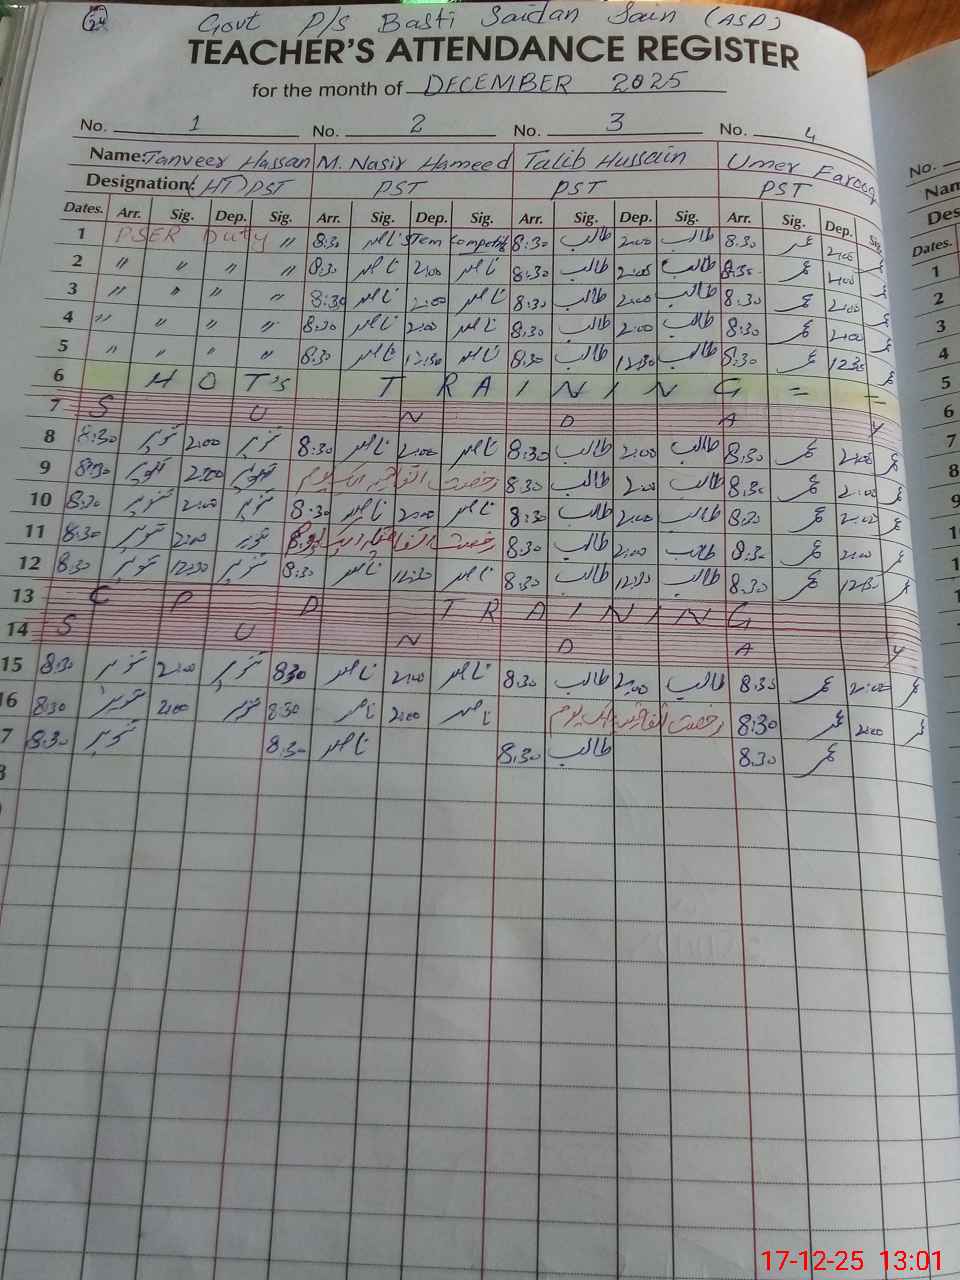 24
Govt P/S Basti Saidan Sain (ASP)
TEACHER'S ATTENDANCE REGISTER
for the month of DECEMBER 2025
No. 1 No. 2 No. 3 No. 4
Name: Tanveer Hassan M. Nasir Hameed Talib Hussain Umer Farooq
Designation: (HT) PST PST PST PST
Dates. Arr. Sig. Dep. Sig. Arr. Sig. Dep. Sig. Arr. Sig. Dep. Sig. Arr. Sig. Dep. Sig.
1 PSER Duty " 8:30 ناصر Stem 8:30 طالب 2:00 طالب 8:30 عمر 2:00
2 " " " " 8:30 ناصر 2:00 ناصر 8:30 طالب 2:00 طالب 8:30 عمر 2:00
3 " " " " 8:30 ناصر 2:00 ناصر 8:30 طالب 2:00 طالب 8:30 عمر 2:00
4 " " " " 8:30 ناصر 2:00 ناصر 8:30 طالب 2:00 طالب 8:30 عمر 2:00
5 " " " " 8:30 ناصر 12:30 ناصر 8:30 طالب 12:30 طالب 8:30 عمر 12:30
6 HOT's TRAINING = =
7 S U N D A Y
8 8:30 تنویر 2:00 تنویر 8:30 ناصر 2:00 ناصر 8:30 طالب 2:00 طالب 8:30 عمر 2:00 عمر
9 8:30 تنویر 2:00 تنویر رخصت اتفاقیہ ایک یوم 8:30 طالب 2:00 طالب 8:30 عمر 2:00 عمر
10 8:30 تنویر 2:00 تنویر 8:30 ناصر 2:00 ناصر 8:30 طالب 2:00 طالب 8:30 عمر 2:00 عمر
11 8:30 تنویر 2:00 تنویر رخصت اتفاقیہ 8:30 طالب 2:00 طالب 8:30 عمر 2:00 عمر
12 8:30 تنویر 12:30 تنویر 8:30 ناصر 12:30 ناصر 8:30 طالب 12:30 طالب 8:30 عمر 12:30 عمر
13 C P D TRAINING
14 S U N D A Y
15 8:30 تنویر 2:00 تنویر 8:30 ناصر 2:00 ناصر 8:30 طالب 2:00 طالب 8:30 عمر 2:00 عمر
16 8:30 تنویر 2:00 تنویر 8:30 ناصر 2:00 ناصر رخصت اتفاقیہ ایک یوم 8:30 عمر 2:00 عمر
7 8:30 تنویر 8:30 ناصر 8:30 طالب 8:30 عمر
No.
Nam
Des
Dates.
1
2
3
4
5
6
7
8
9
10
17-12-25 13:01